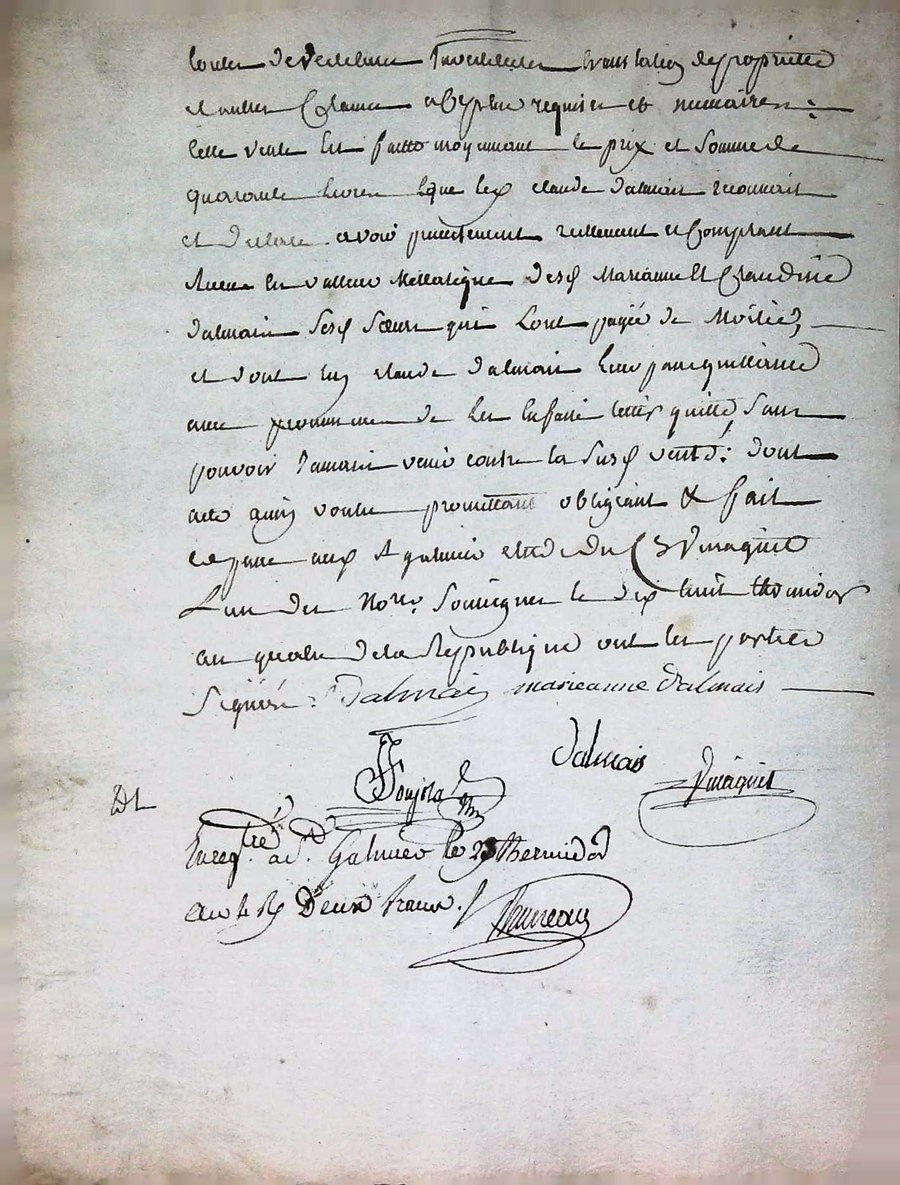 toutes de vestiture translation de propriété
et autres clauses requises et necessaires
Cette vente est faitte moyennant le prix et somme de
quarante livres que led claude dalmais reconnait
et declare avoir presentement reellement et Comptant
Receu en valleur Metallique desd Marianne Et Claudine
dalmais Sesd Sœurs qui L'ont payée de Moitié,
et dont led claude dalmais
avec promesse de les en faire tenir quitte, Sans
pouvoir Jamais venir contre la Susd vente; dont
acte ainsy voulu promettant obligeant & fait
et passé aud St galmier etude du Cen Vinaguet
L'un des Nores. Soussignés le dix huit thermidor
an quatre de la République ont les parties
Signés: Dalmais marieanne Dalmais
Dalmais
Dt
Enregtré. a St. Galmier le 23 Thermidor
an 4. R Deux francs.